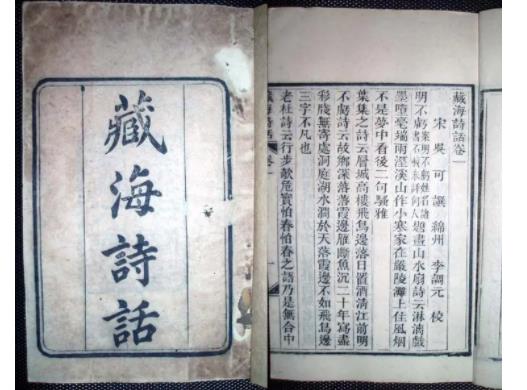 藏海詩話
藏海詩話卷一
宋 吳可 譔 綿州 李調元 校
明不虧案明不虧姓名諸書不載未詳何人題畫山水扇詩云淋漓戲
墨墮毫端雨溼溪山作小寒家在嚴陵灘上住風烟
不是夢中看後二句騷雅
葉集之詩云層城高樓飛鳥邊落日置酒清江前明
不虧詩云故鄉深落落霞邊雁斷魚沉二十年寫盡
彩牋無寄處洞庭湖水濶於天落霞邊不如飛鳥邊
三字不凡也
老杜詩云行步欹危實怕春怕春之語乃是無合中
藏海詩話 卷一 一